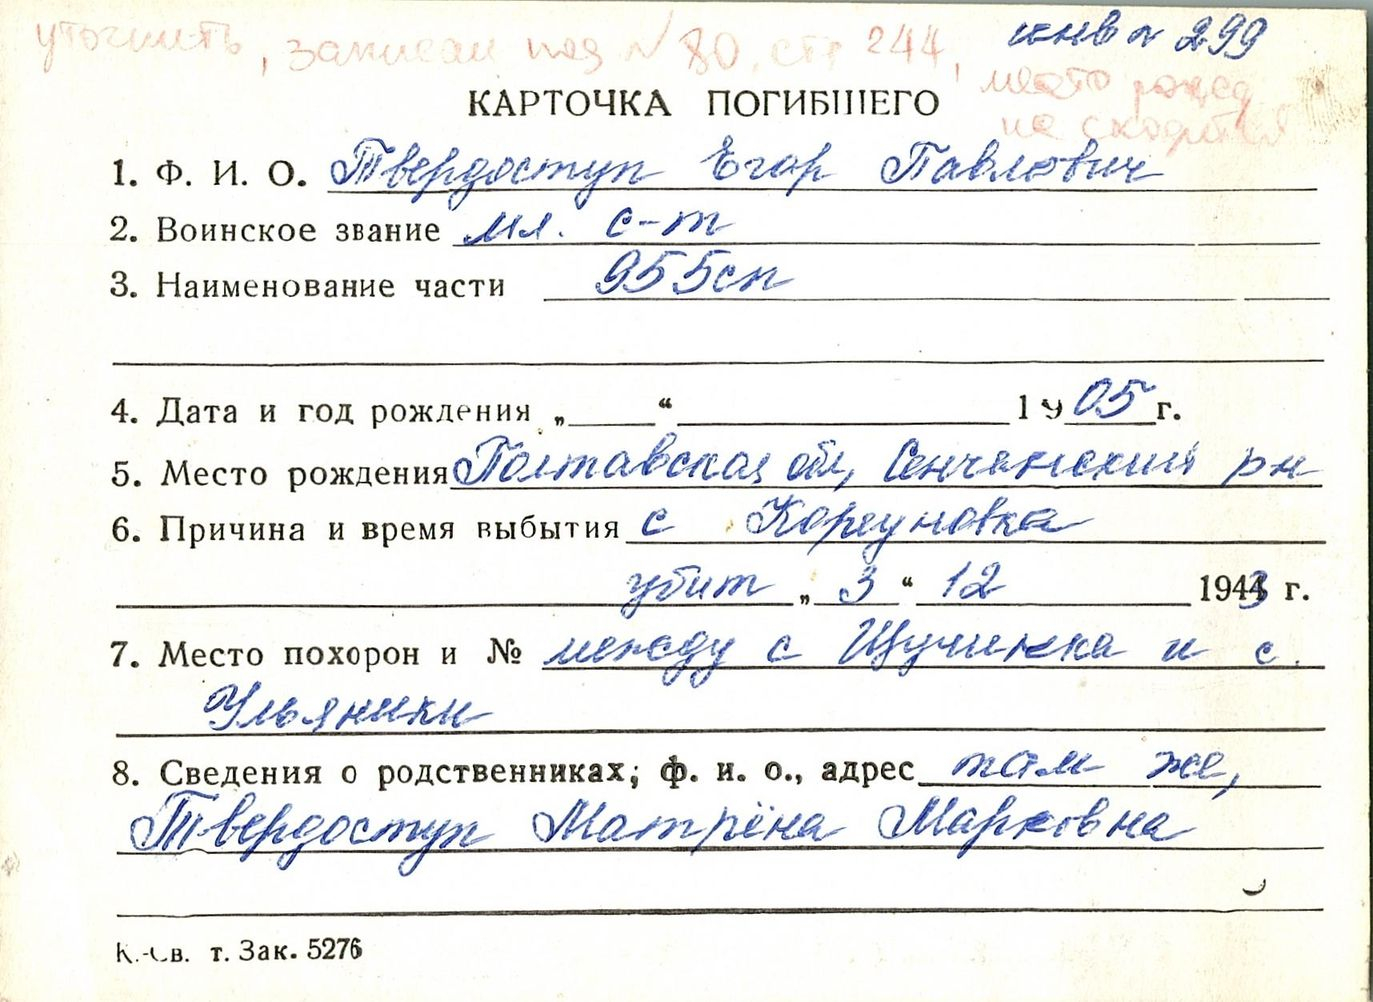 уточнить, записан под N 80, стр 244,
инв N 299
место рожд
не сходится
КАРТОЧКА ПОГИБШЕГО
1. Ф. И. О. Твердоступ Егор Павлович
2. Воинское звание мл. с-т
3. Наименование части 955сп
4. Дата и год рождения „ “ 1905 г.
5. Место рождения Полтавская обл, Сенчанский рн
6. Причина и время выбытия с Корсуновка
убит „ 3 “ 12 1943 г.
7. Место похорон и № между с Щучинка и с.
Ульяники
8. Сведения о родственниках; ф. и. о., адрес там же,
Твердоступ Матрёна Марковна
т. Зак. 5276